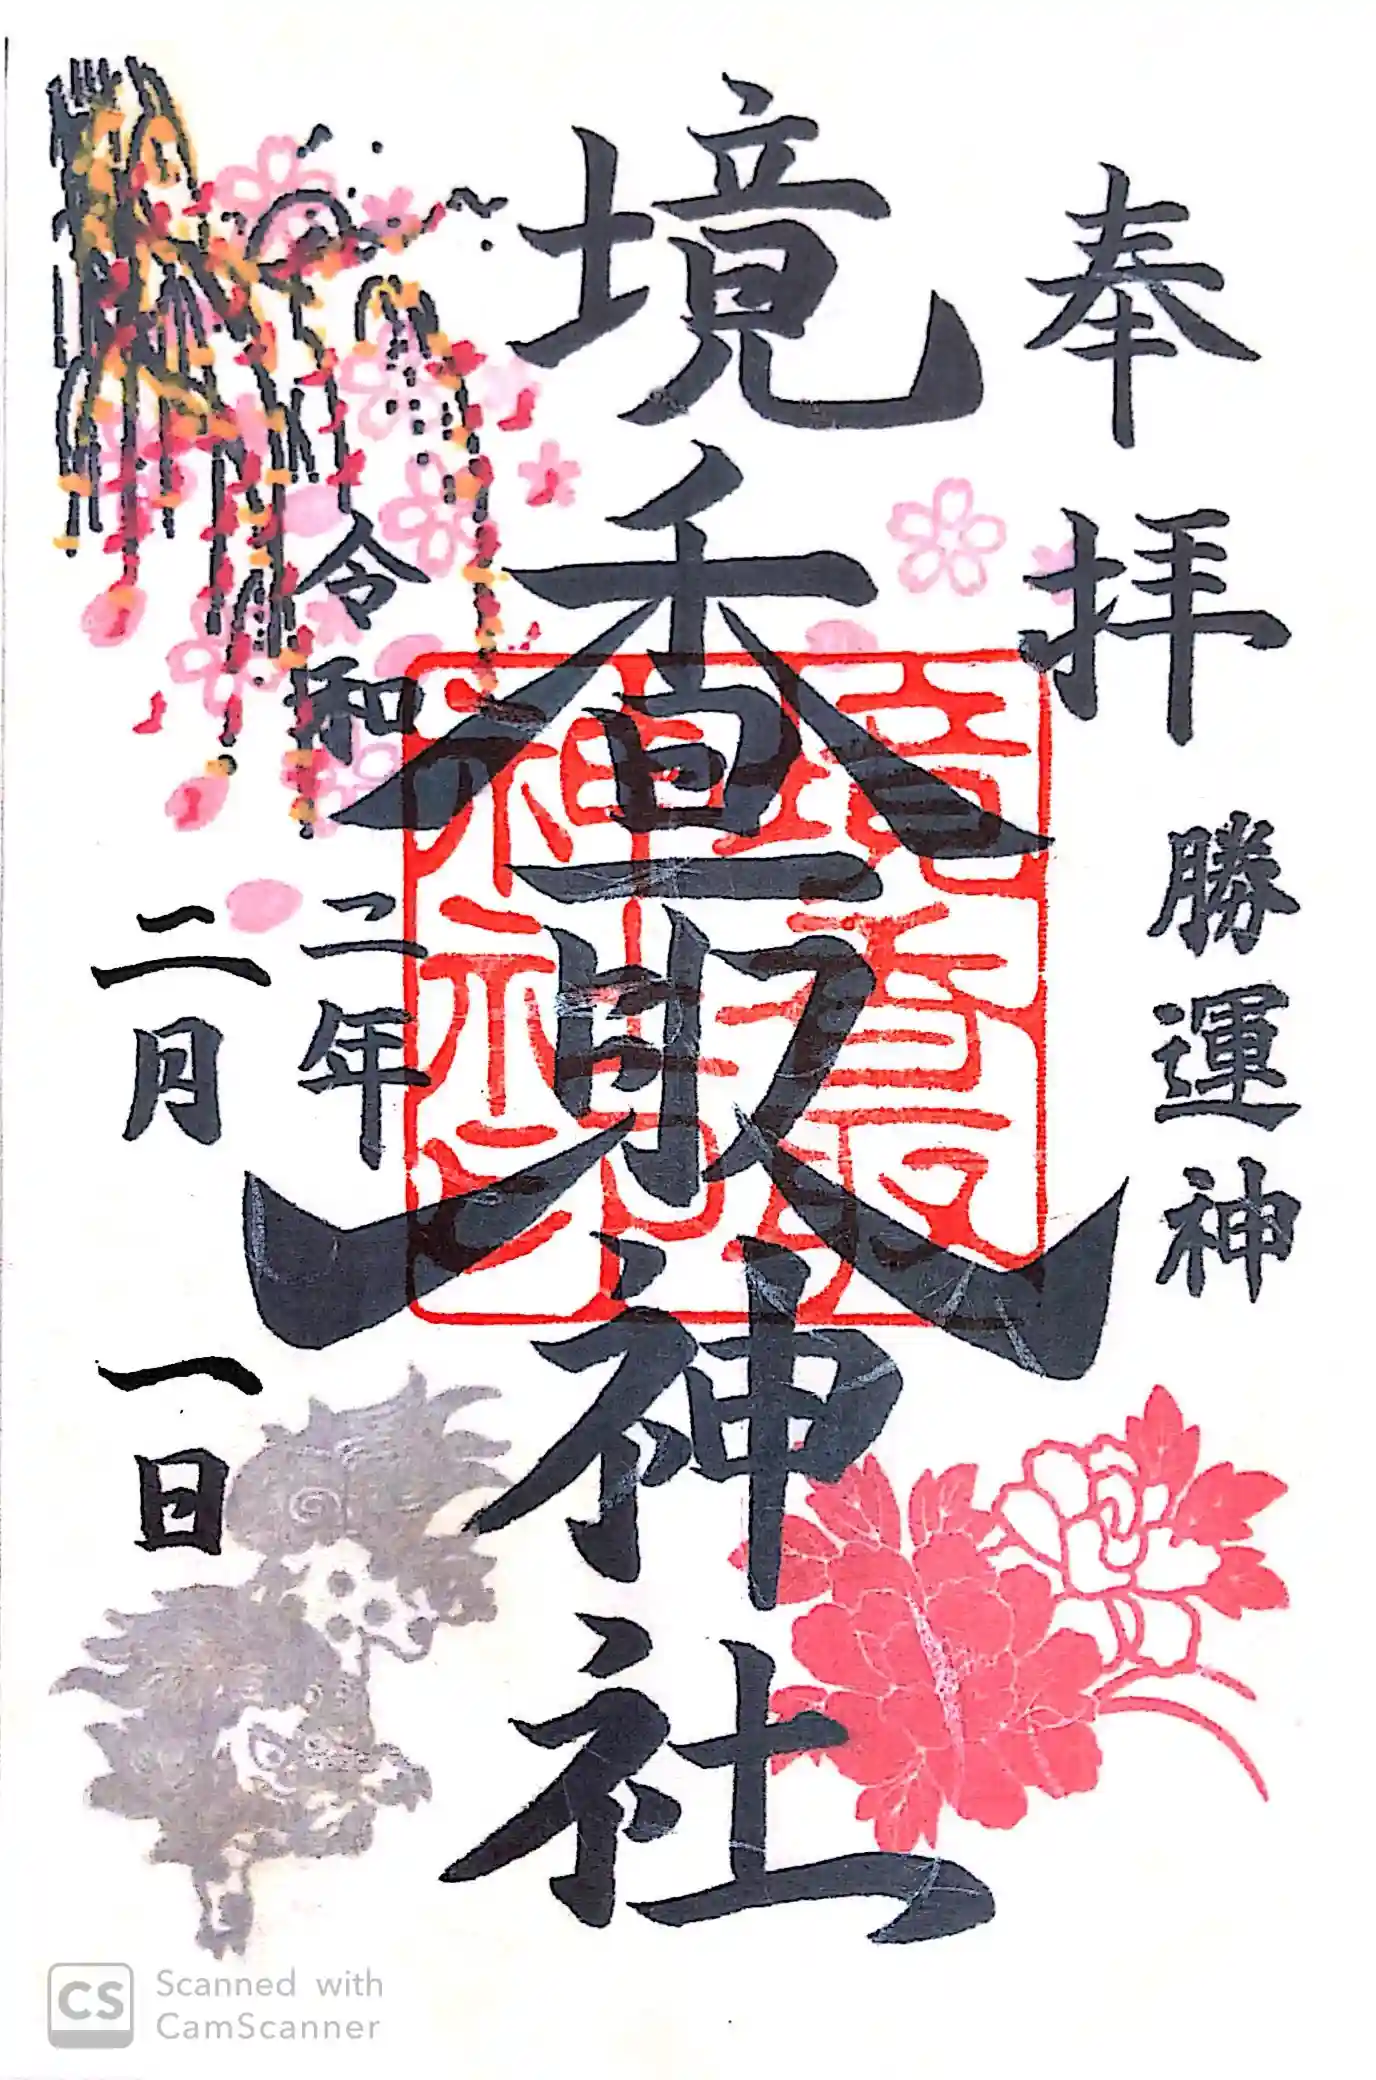 奉拝
勝運神
境香取神社
境香取
神社之印
令和二年
二月一日
CS Scanned with
CamScanner